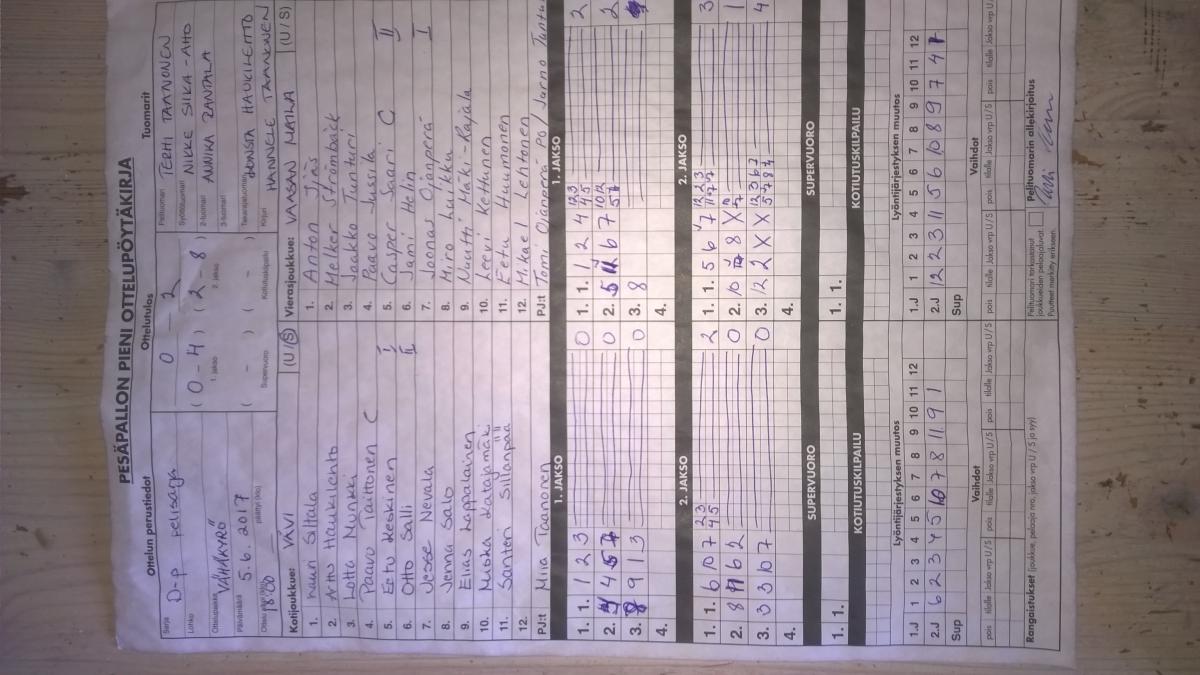 PESÄPALLON PIENI OTTELUPÖYTÄKIRJA
Ottelun perustiedot
Ottelutulos
Tuomarit
Sarja D-p pelisarja
0 - 2
Pelituomari TERHI TAANONEN
Lohko
(0 - 4) (2 - 8)
1. jakso 2. jakso
Syöttötuomari NIKKE SIIKA-AHO
Ottelupaikka VÄHÄKYRÖ
2-tuomari ANNIKA RANTALA
Päivämäärä 5.6.2017
( - ) ( - )
Supervuoro Kotiutuskilpailu
3-tuomari
Takarajatuomari JOONSA HAUKILEHTO
Ottelu alkoi (klo) 18:00 päättyi (klo)
Kirjuri HANNELE TAANONEN
Kotijoukkue: VÄVI (U/S)
Vierasjoukkue: VAASAN MAILA (U/S)
1. Nuuri Siltala
2. Arttu Haukilehto
3. Lotta Munkki
4. Paavo Taittonen C
5. Eetu Keskinen I
6. Otto Salli II
7. Jesse Nevala
8. Jenna Salo
9. Elias Loppalainen
10. Nuska Latajamäki
11. Santeri Siilanpää
12.
PJ:t Miia Taanonen
1. Anton Jäs
2. Helker Strömbäck
3. Jaakko Tunturi
4. Paavo Jussila
5. Casper Saari C II
6. Sami Helin I
7. Joonas Ojanperä
8. Miro Luikku
9. Nuutti Mäki-Rajala
10. Leevi Kettunen
11. Eetu Huumonen
12. Mikael Lehtonen
PJ:t Tomi Ojanperä PÖ / Jarno Tuntu
1. JAKSO
1. JAKSO
1. 1. 1 2 3 0
1. 1. 1 2 4 2
2. 4 5 0
2. 5 6 7 2
3. 9 1 3 0
3. 8
4.
4.
2. JAKSO
2. JAKSO
1. 1. 6 10 7 2
1. 1. 5 6 7 3
2. 8 6 2 0
2. 10 8 X 1
3. 3 10 7 0
3. 12 2 X X 4
4.
4.
SUPERVUORO
SUPERVUORO
1. 1.
1. 1.
KOTIUTUSKILPAILU
KOTIUTUSKILPAILU
Lyöntijärjestyksen muutos
Lyöntijärjestyksen muutos
1.J 1 2 3 4 5 6 7 8 9 10 11 12
1.J 1 2 3 4 5 6 7 8 9 10 11 12
2.J 6 2 3 4 5 10 7 8 11 9 1
2.J 12 2 3 11 5 6 10 8 9 7 4 1
Sup
Sup
Vaihdot
Vaihdot
pois tilalle Jakso vrp U/S pois tilalle Jakso vrp U/S pois tilalle Jakso vrp U/S
pois tilalle Jakso vrp U/S pois tilalle Jakso vrp U/S pois tilalle Jakso vrp U/S
Rangaistukset (joukkue, pelaaja nro, jakso vrp U/S ja syy)
Pelituomari tarkastanut joukkueiden pelaajaluvat. Puutteet merkitty erikseen.
Pelituomarin allekirjoitus